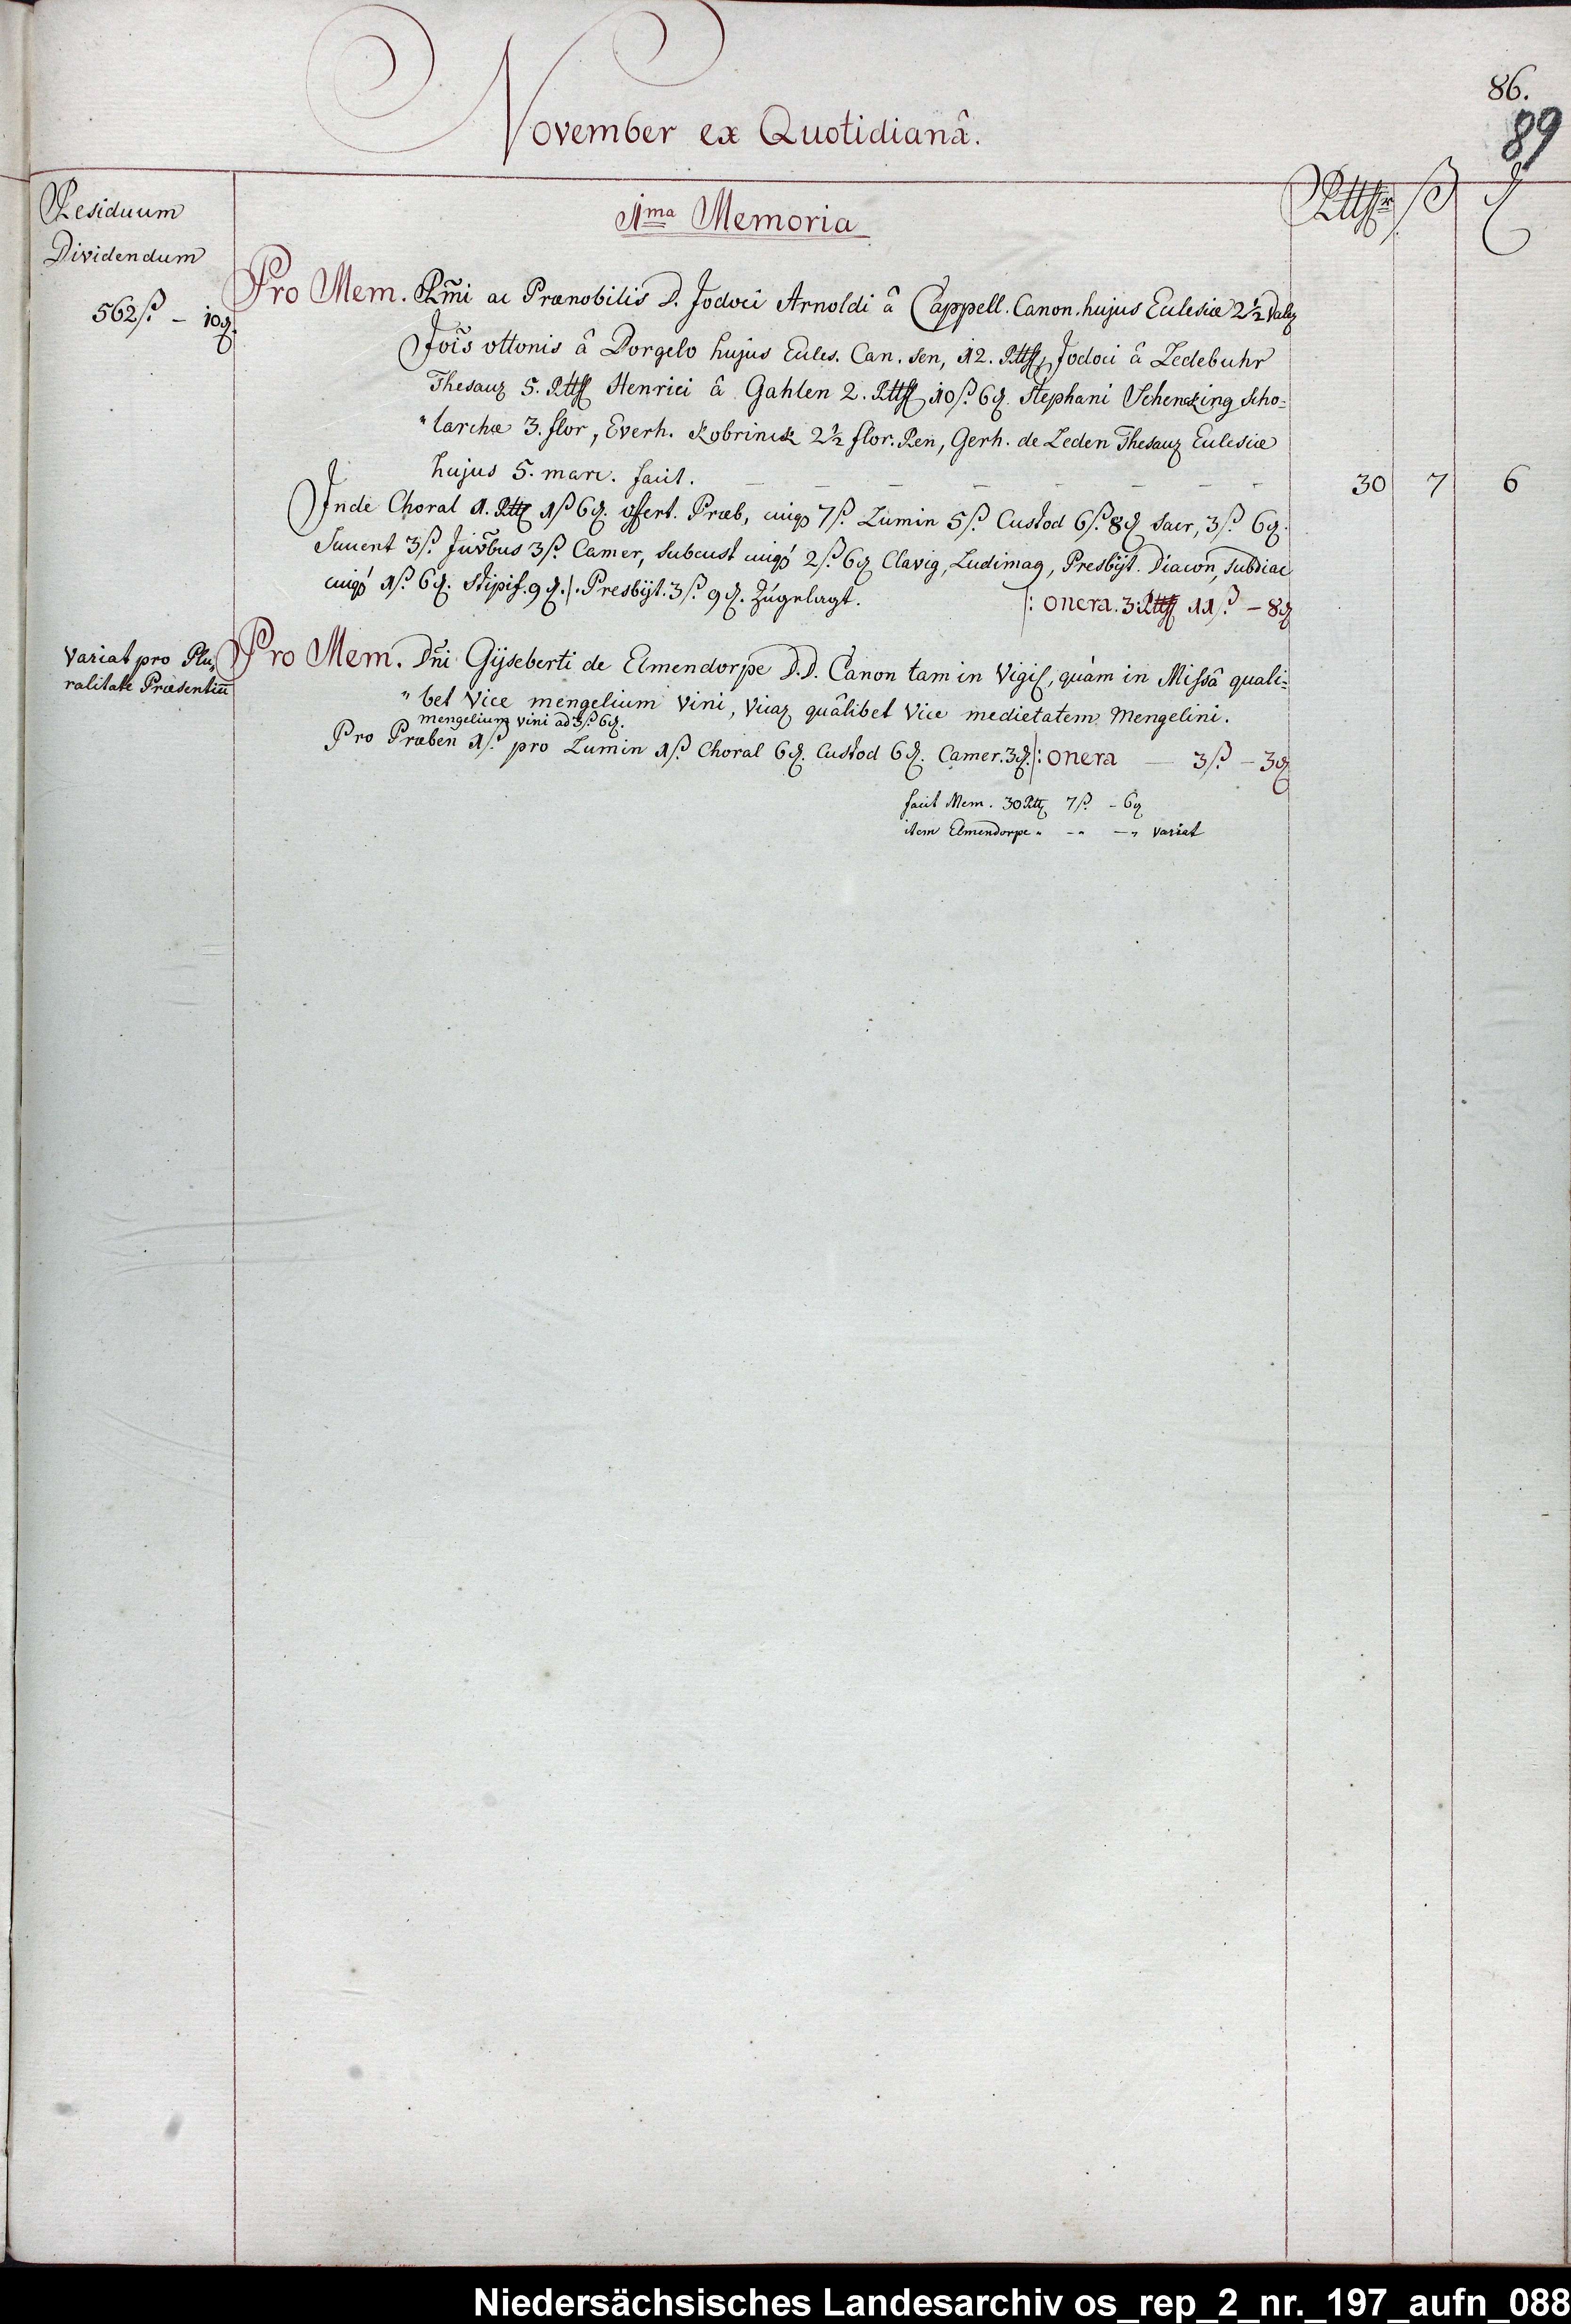 86.
89
November ex Quotidianâ.
Residuum
Dividendum
1ma Memoria
Rttlr ß ₰
562ß. – 10₰.
Pro Mem. Rm̃i ac Prænobilis D. Jodoci Arnoldi â Cappell. Canon. hujus Ecclesiæ 2½ Daler
Jois̃ ottonis â Dorgelo hujus Eccles. Can. Sen, 12. Rttlr Jodoci â Ledebuhr
Thesaur 5. Rttlr Henrici â Gahlen 2. Rttlr 10ß. 6₰. Stephani Schencking Scho=
"larchæ 3. flor, Everh. Kobrinck 2½ flor. Ren, Gerh. de Leden Thesaur Ecclesiæ
hujus 5. marc. facit. – – – – – – – – 30 7 6
Inde Choral 1. Rttlr 1ß 6₰. offert. Præb, cuiq3 7ß. Lumin 5ß. Custod 6ß. 8₰ Sacr, 3ß. 6₰.
Succent 3ß. Jurb̃us 3ß. Camer, Subcust cuiq3 2ß. 6₰ Clavig, Ludimag, Presbÿt. Diacon, Subdiac
cuiq3 1ß. 6₰. Stipif. 9₰. /. Presbijt. 3ß. 9₰. Zugelagt.
/: onera. 3: Rttlr 11ß. – 8₰
Variat pro Plu„
ralitate Præsentiũ
Pro Mem. Dn̄i Gijseberti de Elmendorpe D.D. Canon tam in Vigil, quàm in Missâ quali=
"bet Vice mengelium Vini, Vicar quâlibet Vice medietatem Mengelini.
mengelium vini ad 3ß. 6₰.
Pro Præben 1ß. pro Lumin 1ß. Choral 6₰. Custod 6₰. Camer. 3₰. /: onera — 3ß. – 3₰
facit Mem. 30 Rttlr 7ß. – 6₰
item Elmendorpe „ – „ – „ variat
Niedersächsisches Landesarchiv os_rep_2_nr._197_aufn_088